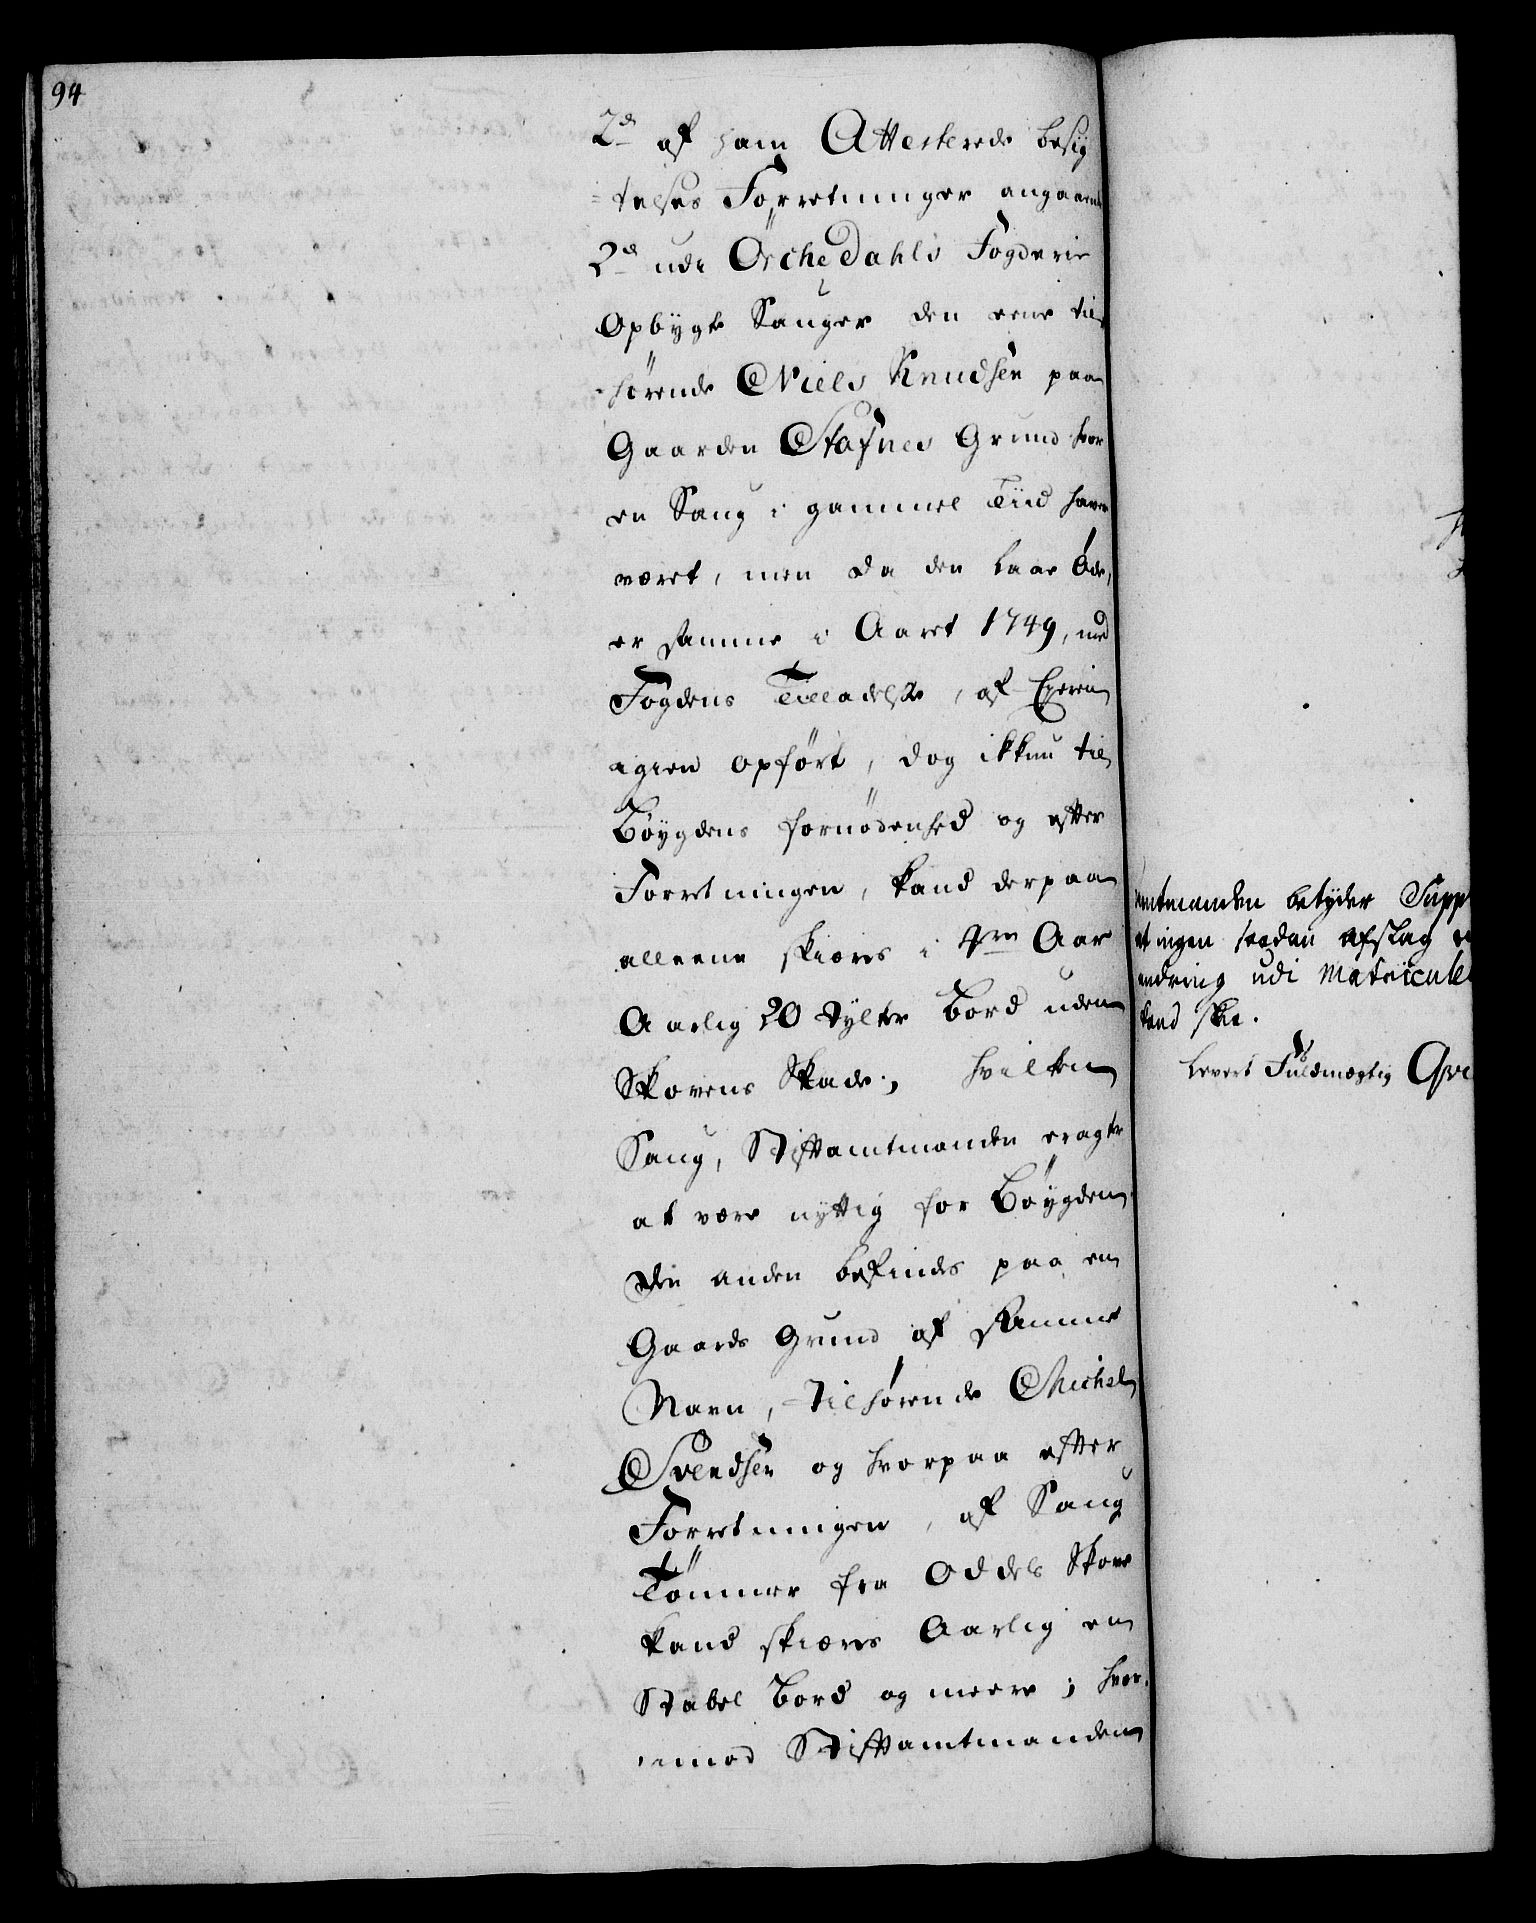 94
2de af ham Attesterede besig
=telses Forretninger angaaende
2de udi OrcheDahls Fogderie
Opbygte Sauger den eene til
=hörende Niels Knudsen paa
Gaarden Stafnes Grund hvor
en Saug i gammel Tiid haver
været, men da den laae Öde,
er samme i Aaret 1749, med
Fogdens Tilladelse, af Eyeren
igien opfört, dog ikkun til
Böygdens fornödenhed og efter
Forretningen, kand derpaa
alleene skiæres i Aar
Aarlig 20 tylter Bord uden
Skovens Skade; hvilken
Saug, Stiftamtmanden eragter
at være nyttig for Böygden.
Den anden befindes paa en
Gaards Grund af samme
Navn, tilhörende Michel
Svendsen og hvorpaa efter
Forretningen, af Saug
Tömmer fra Odels Skove
kand skiæres Aarlig en
Stabel Bord og meere; hvor
=imod Stiftamtmanden
amtmanden betyder Supp
at ingen saadan afslag
endring udi Matricule
kand skee.
Levert Fuldmægtig